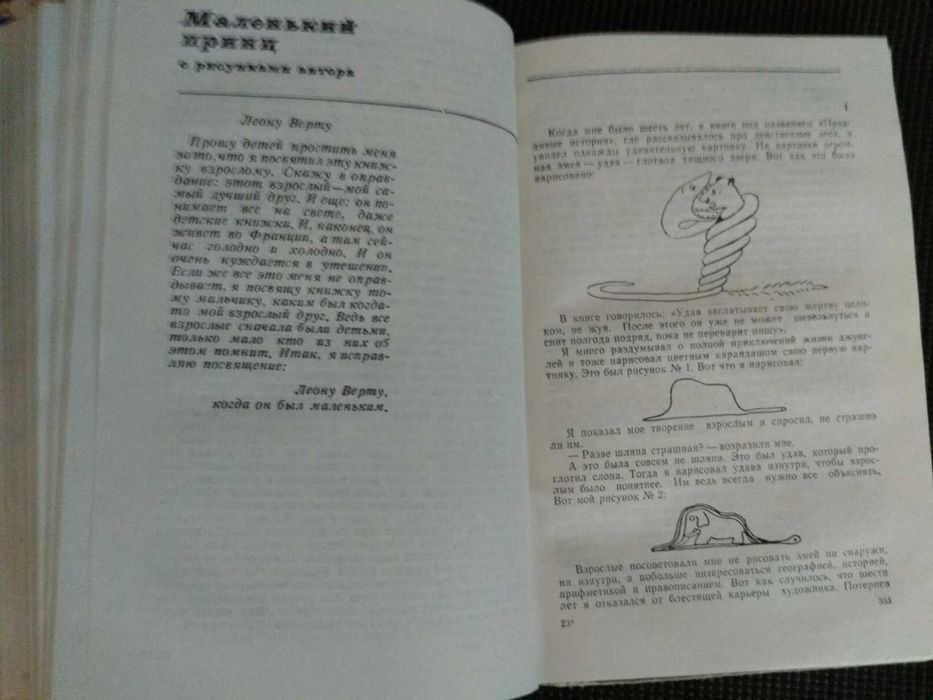 Маленький
принц
с рисунками автора
Леону Верту
Прошу детей простить меня
за то, что я посвятил эту книж-
ку взрослому. Скажу в оправ-
дание: этот взрослый—мой са-
мый лучший друг. И еще: он по-
нимает все на свете, даже
детские книжки. И, наконец, он
живет во Франции, а там сей-
час голодно и холодно. И он
очень нуждается в утешении.
Если же все это меня не оправ-
дывает, я посвящу книжку то-
му мальчику, каким был когда-
то мой взрослый друг. Ведь все
взрослые сначала были детьми,
только мало кто из них об
этом помнит. Итак, я исправ-
ляю посвящение:
Леону Верту,
когда он был маленьким.
I
Когда мне было шесть лет, в книге под названием «Прав-
дивые истории», где рассказывалось про девственные леса, я
увидел однажды удивительную картинку. На картинке огром-
ная змея — удав — глотала хищного зверя. Вот как это было
нарисовано:
В книге говорилось: «Удав заглатывает свою жертву цели-
ком, не жуя. После этого он уже не может шевельнуться и
спит полгода подряд, пока не переварит пищу».
Я много раздумывал о полной приключений жизни джунг-
лей и тоже нарисовал цветным карандашом свою первую кар-
тинку. Это был рисунок № 1. Вот что я нарисовал:
Я показал мое творение взрослым и спросил, не страшно
ли им.
— Разве шляпа страшная? — возразили мне.
А это была совсем не шляпа. Это был удав, который про-
глотил слона. Тогда я нарисовал удава изнутри, чтобы взрос-
лым было понятнее. Им ведь всегда нужно все объяснять.
Вот мой рисунок № 2:
Взрослые посоветовали мне не рисовать змей ни снаружи,
ни изнутри, а побольше интересоваться географией, историей,
арифметикой и правописанием. Вот как случилось, что шести
лет я отказался от блестящей карьеры художника. Потерпев
23*
353